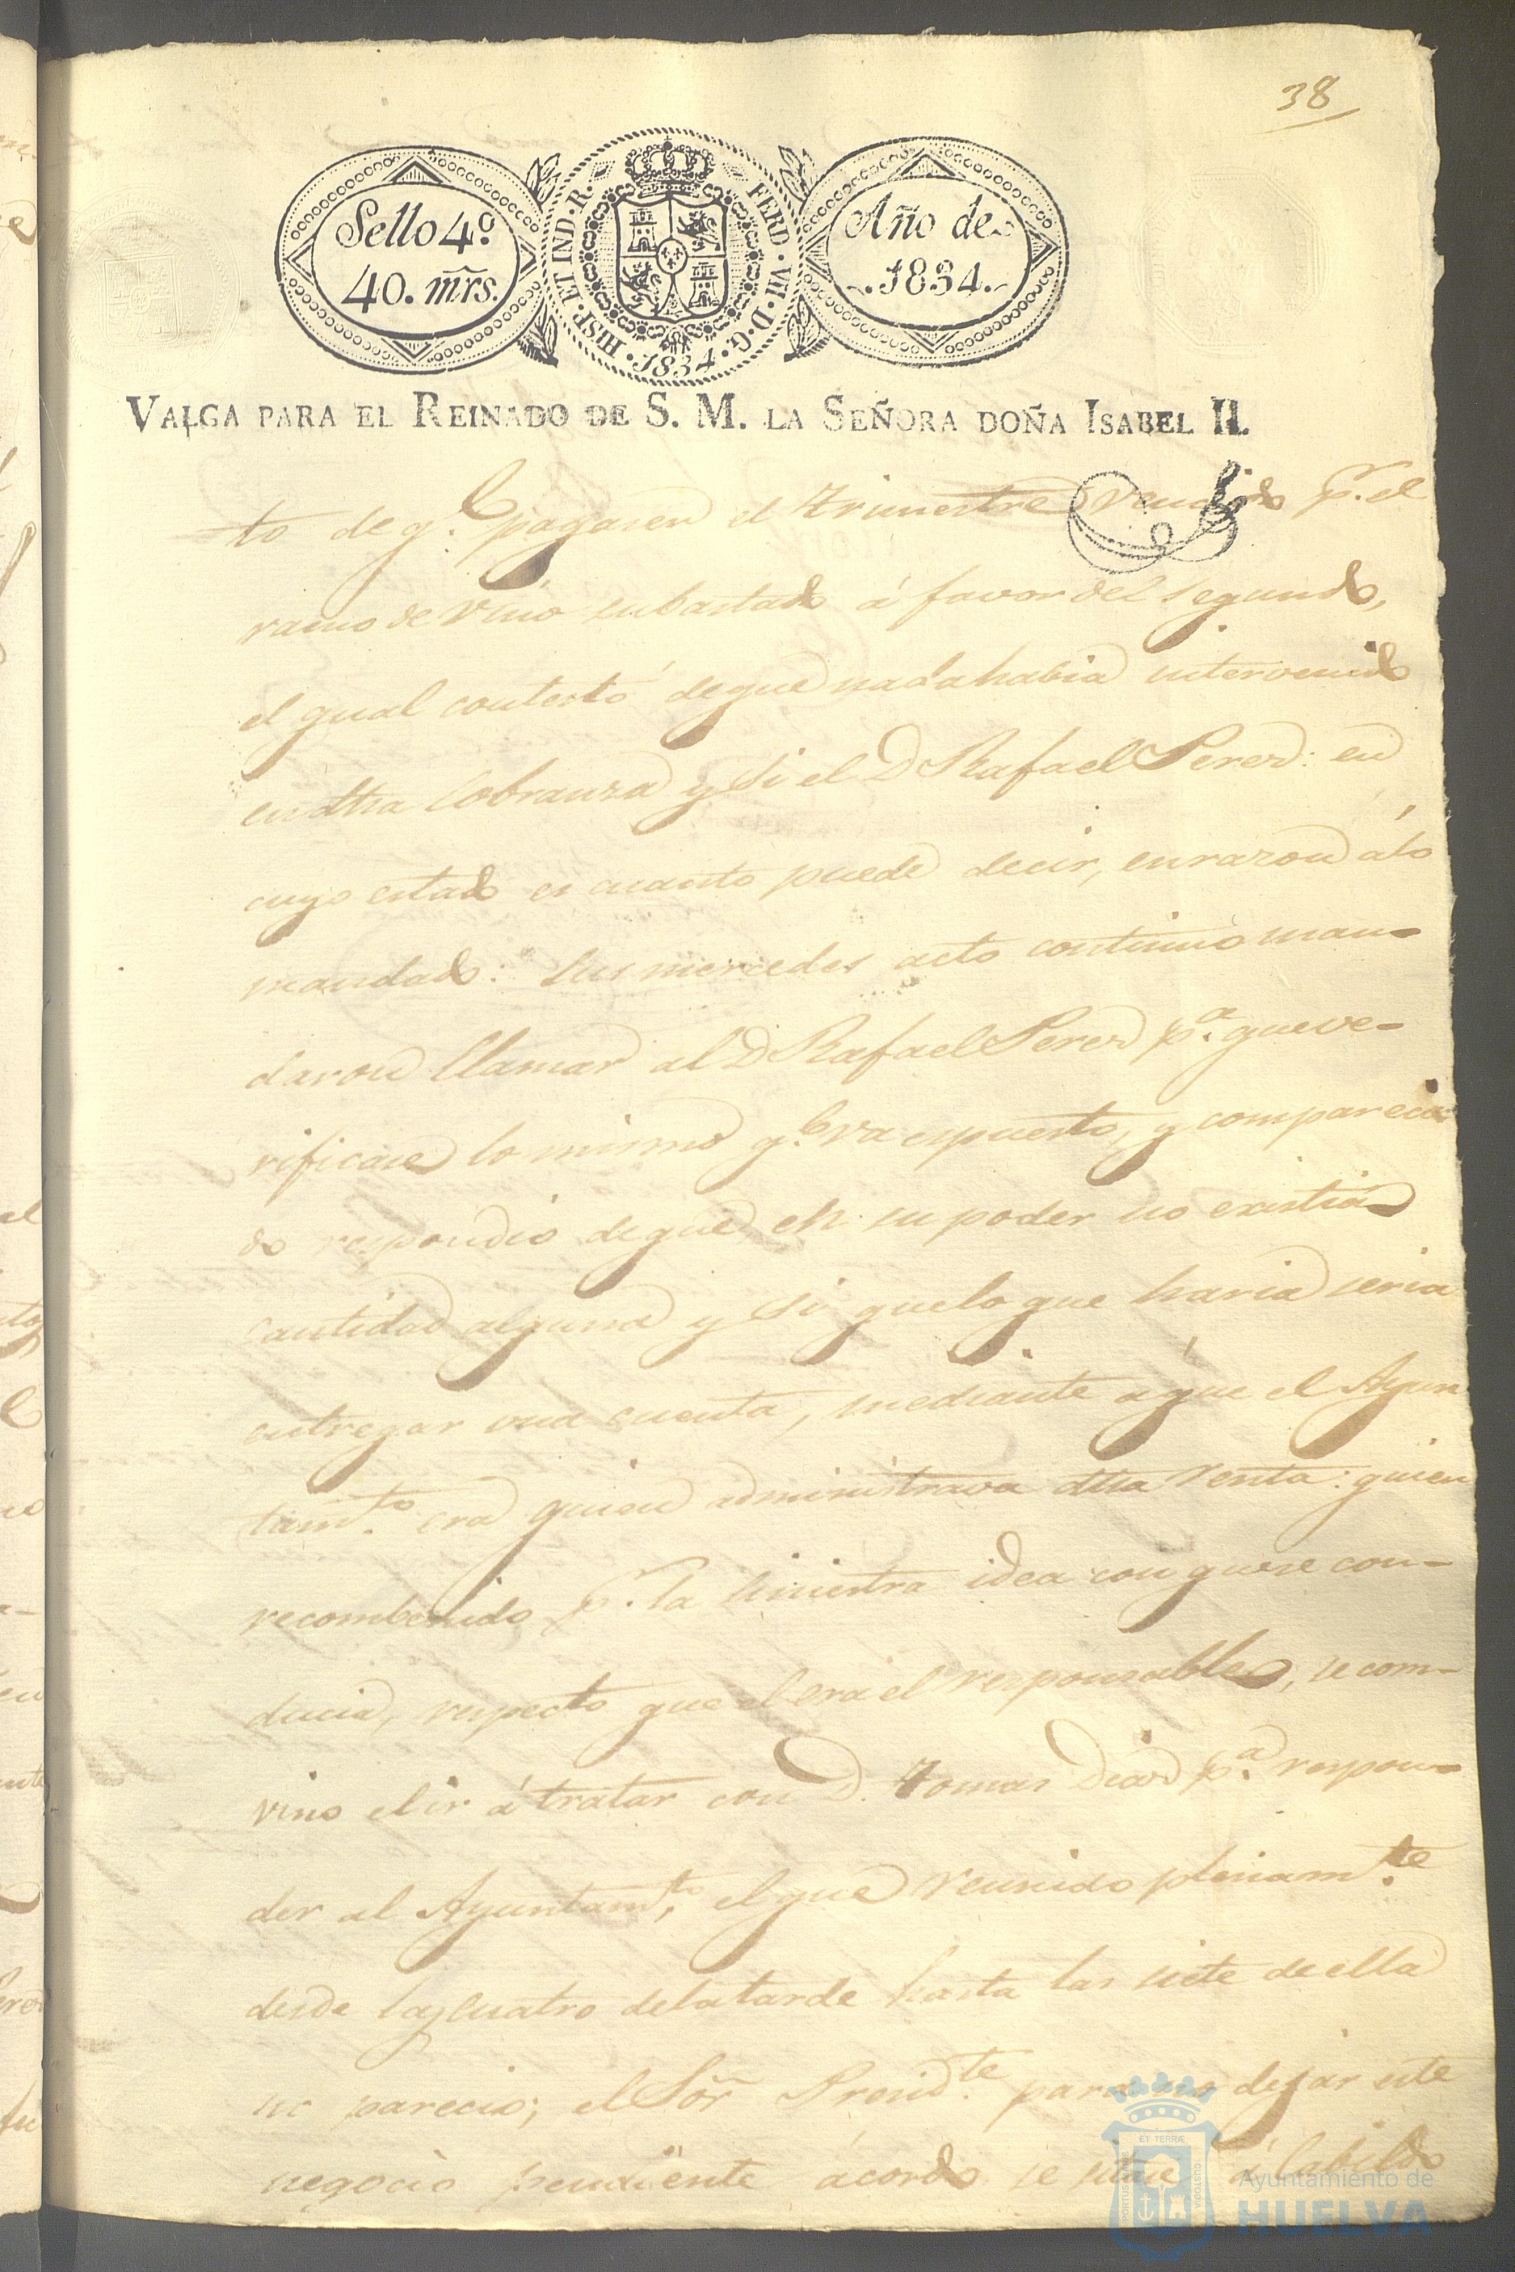 38
Sello 4º
40. mrs.
HISP. ET IND. R. FERD. VII. D. G. 1834.
Año de
1834.
VALGA PARA EL REINADO DE S. M. LA SEÑORA DOÑA ISABEL II.
to de q.e pagasen el trimestre vencido p.r el
ramo de vino subastado á favor del segundo,
el qual contestó deque nada habia intervenido
en dha cobranza y si el D Rafael Perez: en
cuyo estado es cuanto puede decir, enrazon álo
mandado: sus mercedes acto continuo man-
daron llamar al D Rafael Perez p.a queve-
rificase lo mismo q.e va espuesto, y comparecien
do respondio deque en su poder no existia
cantidad alguna y si quelo que haria seria
entregar una cuenta, mediante á que el Ayun
tam.to era quien administrava dha renta: quien
recombenido p.r la siniestra idea con quese con-
ducia, respecto que el era el responsable, se com-
vino el ir á tratar con D. Tomas Diaz p.a respon-
der al Ayuntam.to, el que reunido plenam.te
desde las cuatro delatarde hasta las siete de ella
no parecio; el Sor Presid.te para no dejar este
negocio pendiente ácordo se sitase á Cabildo
PORTUS MARIS ET TERRÆ CUSTODIA
Ayuntamiento de
HUELVA